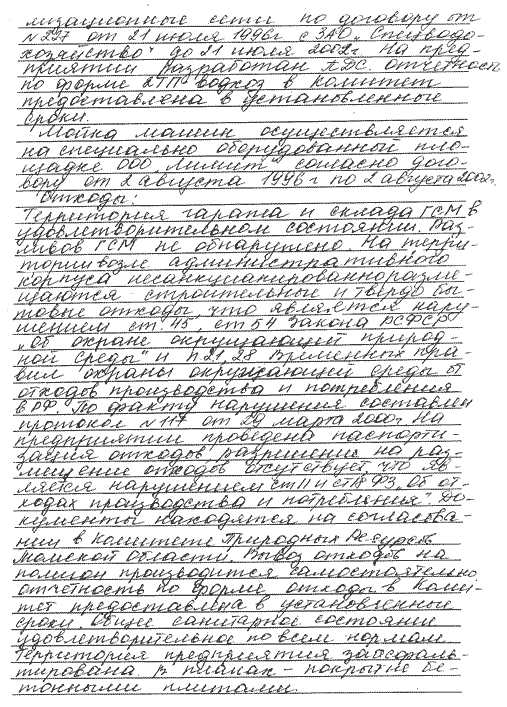 лизационные сети по договору от
N 297 от 21 июля 1996г с ЗАО „Спецводо-
хозяйство" до 21 июля 2002г На пред-
приятии разработан ПДС. отчетность
по форме 2ТП водхоз в Комитет
предоставлена в установленные
сроки.
Мойка машин осуществляется
на специально оборудованный пло-
щадке ООО „Лимит" согласно дого-
вору от 2 августа 1996г по 2 августа 2002г.
Отходы:
Территория гаража и склада ГСМ в
удовлетворительном состоянии. Раз-
ливов ГСМ не обнаружено На терри-
тории возле административного
корпуса несанкцианированно разме-
щаются строительные и твердо бы-
товые отходы, что является нару-
шением ст. 45, ст 54 Закона РСФСР
„Об охране окружающий природ-
ной среды" и п 21,28 Временных пра-
вил охраны окружающей среды от
отходов производства и потребления
в РФ. По факту нарушения составлен
протокол N 117 от 29 марта 2000г На
предприятии проведена паспорти-
зация отходов, разрешение на раз-
мещение отходов отсутствует, что яв-
ляется нарушением ст 11 и ст 18 ФЗ „Об от-
ходах производства и потребления" До-
кументы находятся на согласова-
нии в Комитете Природных Ресурсов
Томской области. Вывоз отходов на
полигон производится самостоятельно
отчетность по форме отходы в Коми-
тет предоставлена в установленные
сроки. Общее санитарное состояние
удовлетворительное по всем нормам
Территория предприятия заасфаль-
тирована, в планах - покрытие бе-
тонными плитами.